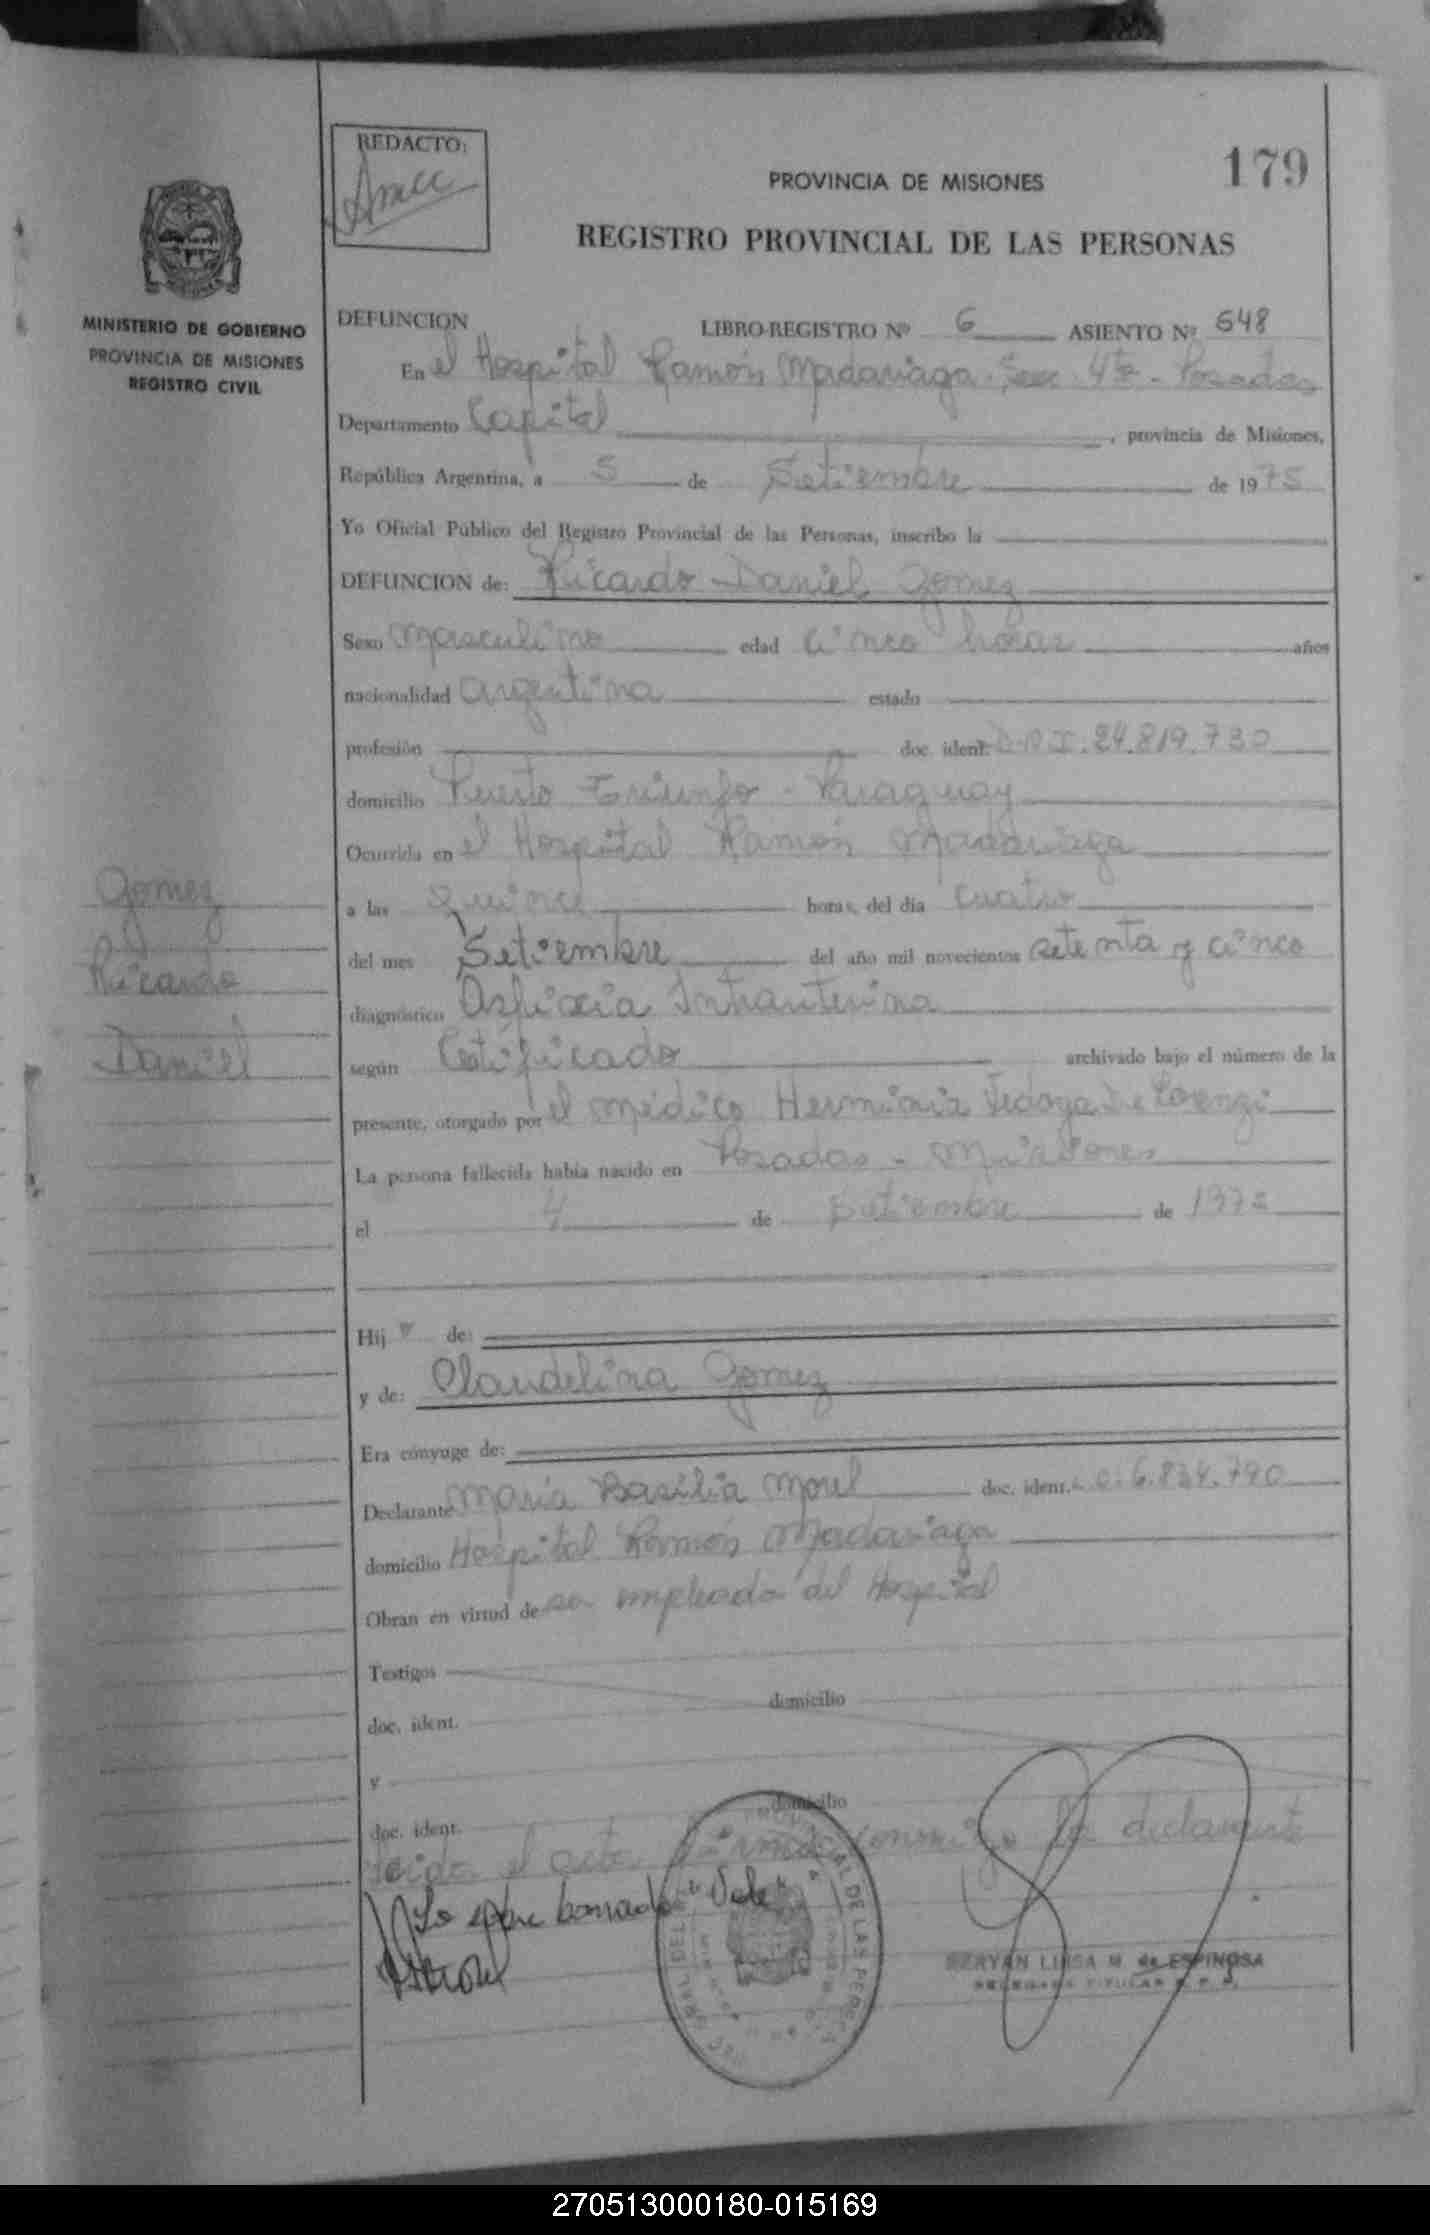 REDACTO:
179
PROVINCIA DE MISIONES
REGISTRO PROVINCIAL DE LAS PERSONAS
MINISTERIO DE GOBIERNO
PROVINCIA DE MISIONES
REGISTRO CIVIL
DEFUNCION
LIBRO-REGISTRO Nº 6 ASIENTO Nº 648
En el Hospital Ramón Madariaga - Secc 4ta - Posadas
Departamento Capital, provincia de Misiones,
República Argentina, a 5 de Setiembre de 1975
Yo Oficial Público del Registro Provincial de las Personas, inscribo la
DEFUNCION de: Ricardo Daniel Gomez
Sexo masculino edad cinco horas años
nacionalidad argentina estado
profesión doc. ident. D.N.I. 24.819.730
domicilio Puerto Triunfo - Paraguay
Ocurrida en el Hospital Ramón Madariaga
a las quince horas, del día cuatro
del mes Setiembre del año mil novecientos setenta y cinco
diagnóstico Asfixia Intrauterina
según Certificado archivado bajo el número de la
presente, otorgado por el médico Herminia Fedoya De Lorenzi
La persona fallecida había nacido en Posadas - Misiones
el 4 de Setiembre de 1975
Gomez
Ricardo
Daniel
Hij o de:
y de: Claudelina Gomez
Era cónyuge de:
Declarante María Basilia Morel doc. ident. L.C. 6.834.790
domicilio Hospital Ramón Madariaga
Obran en virtud de ser empleada del Hospital
Testigos domicilio
doc. ident.
y domicilio
doc. ident.
Leida el acta firma conmigo la declarante
Lo sobre borrado "Vale"
BERYAN LUISA M. de ESPINOSA
270513000180-015169